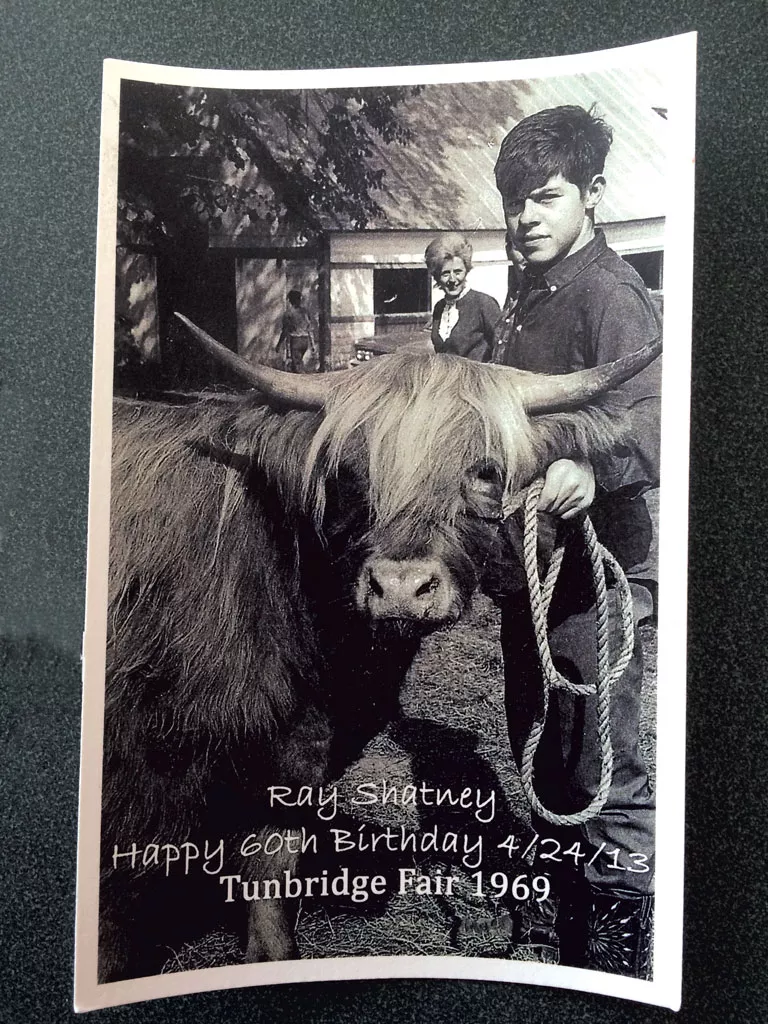 Ray Shatney
Happy 60th Birthday 4/24/13
Tunbridge Fair 1969